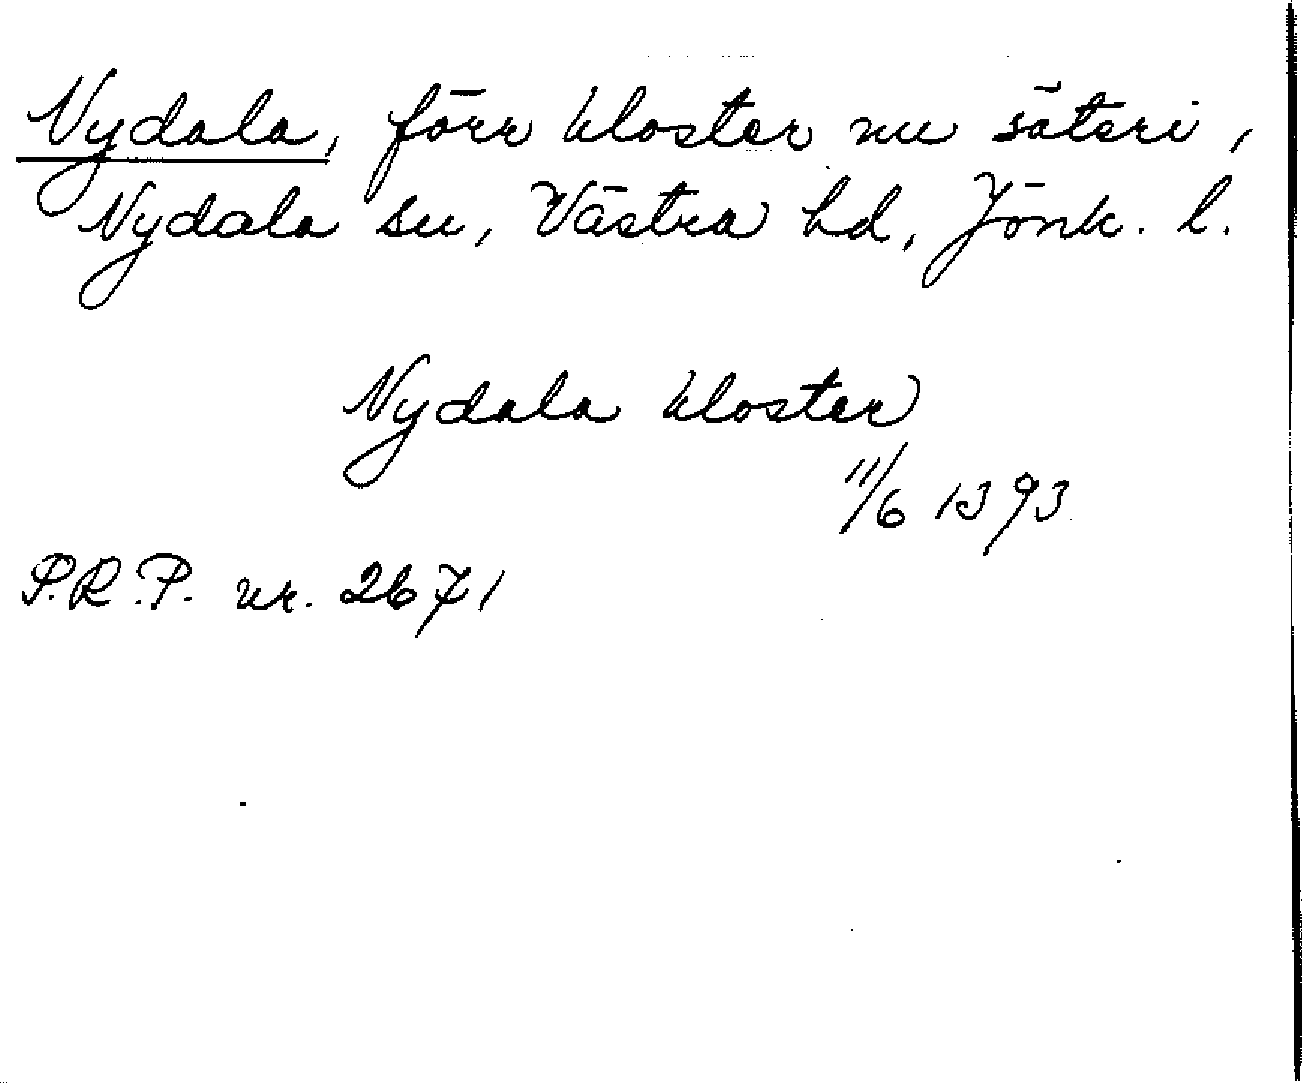 Nydala, förr kloster nu säteri,
Nydala sn, Västra hd, Jönk. l.
Nydala kloster
11/6 1393
S.R.P. nr. 2671